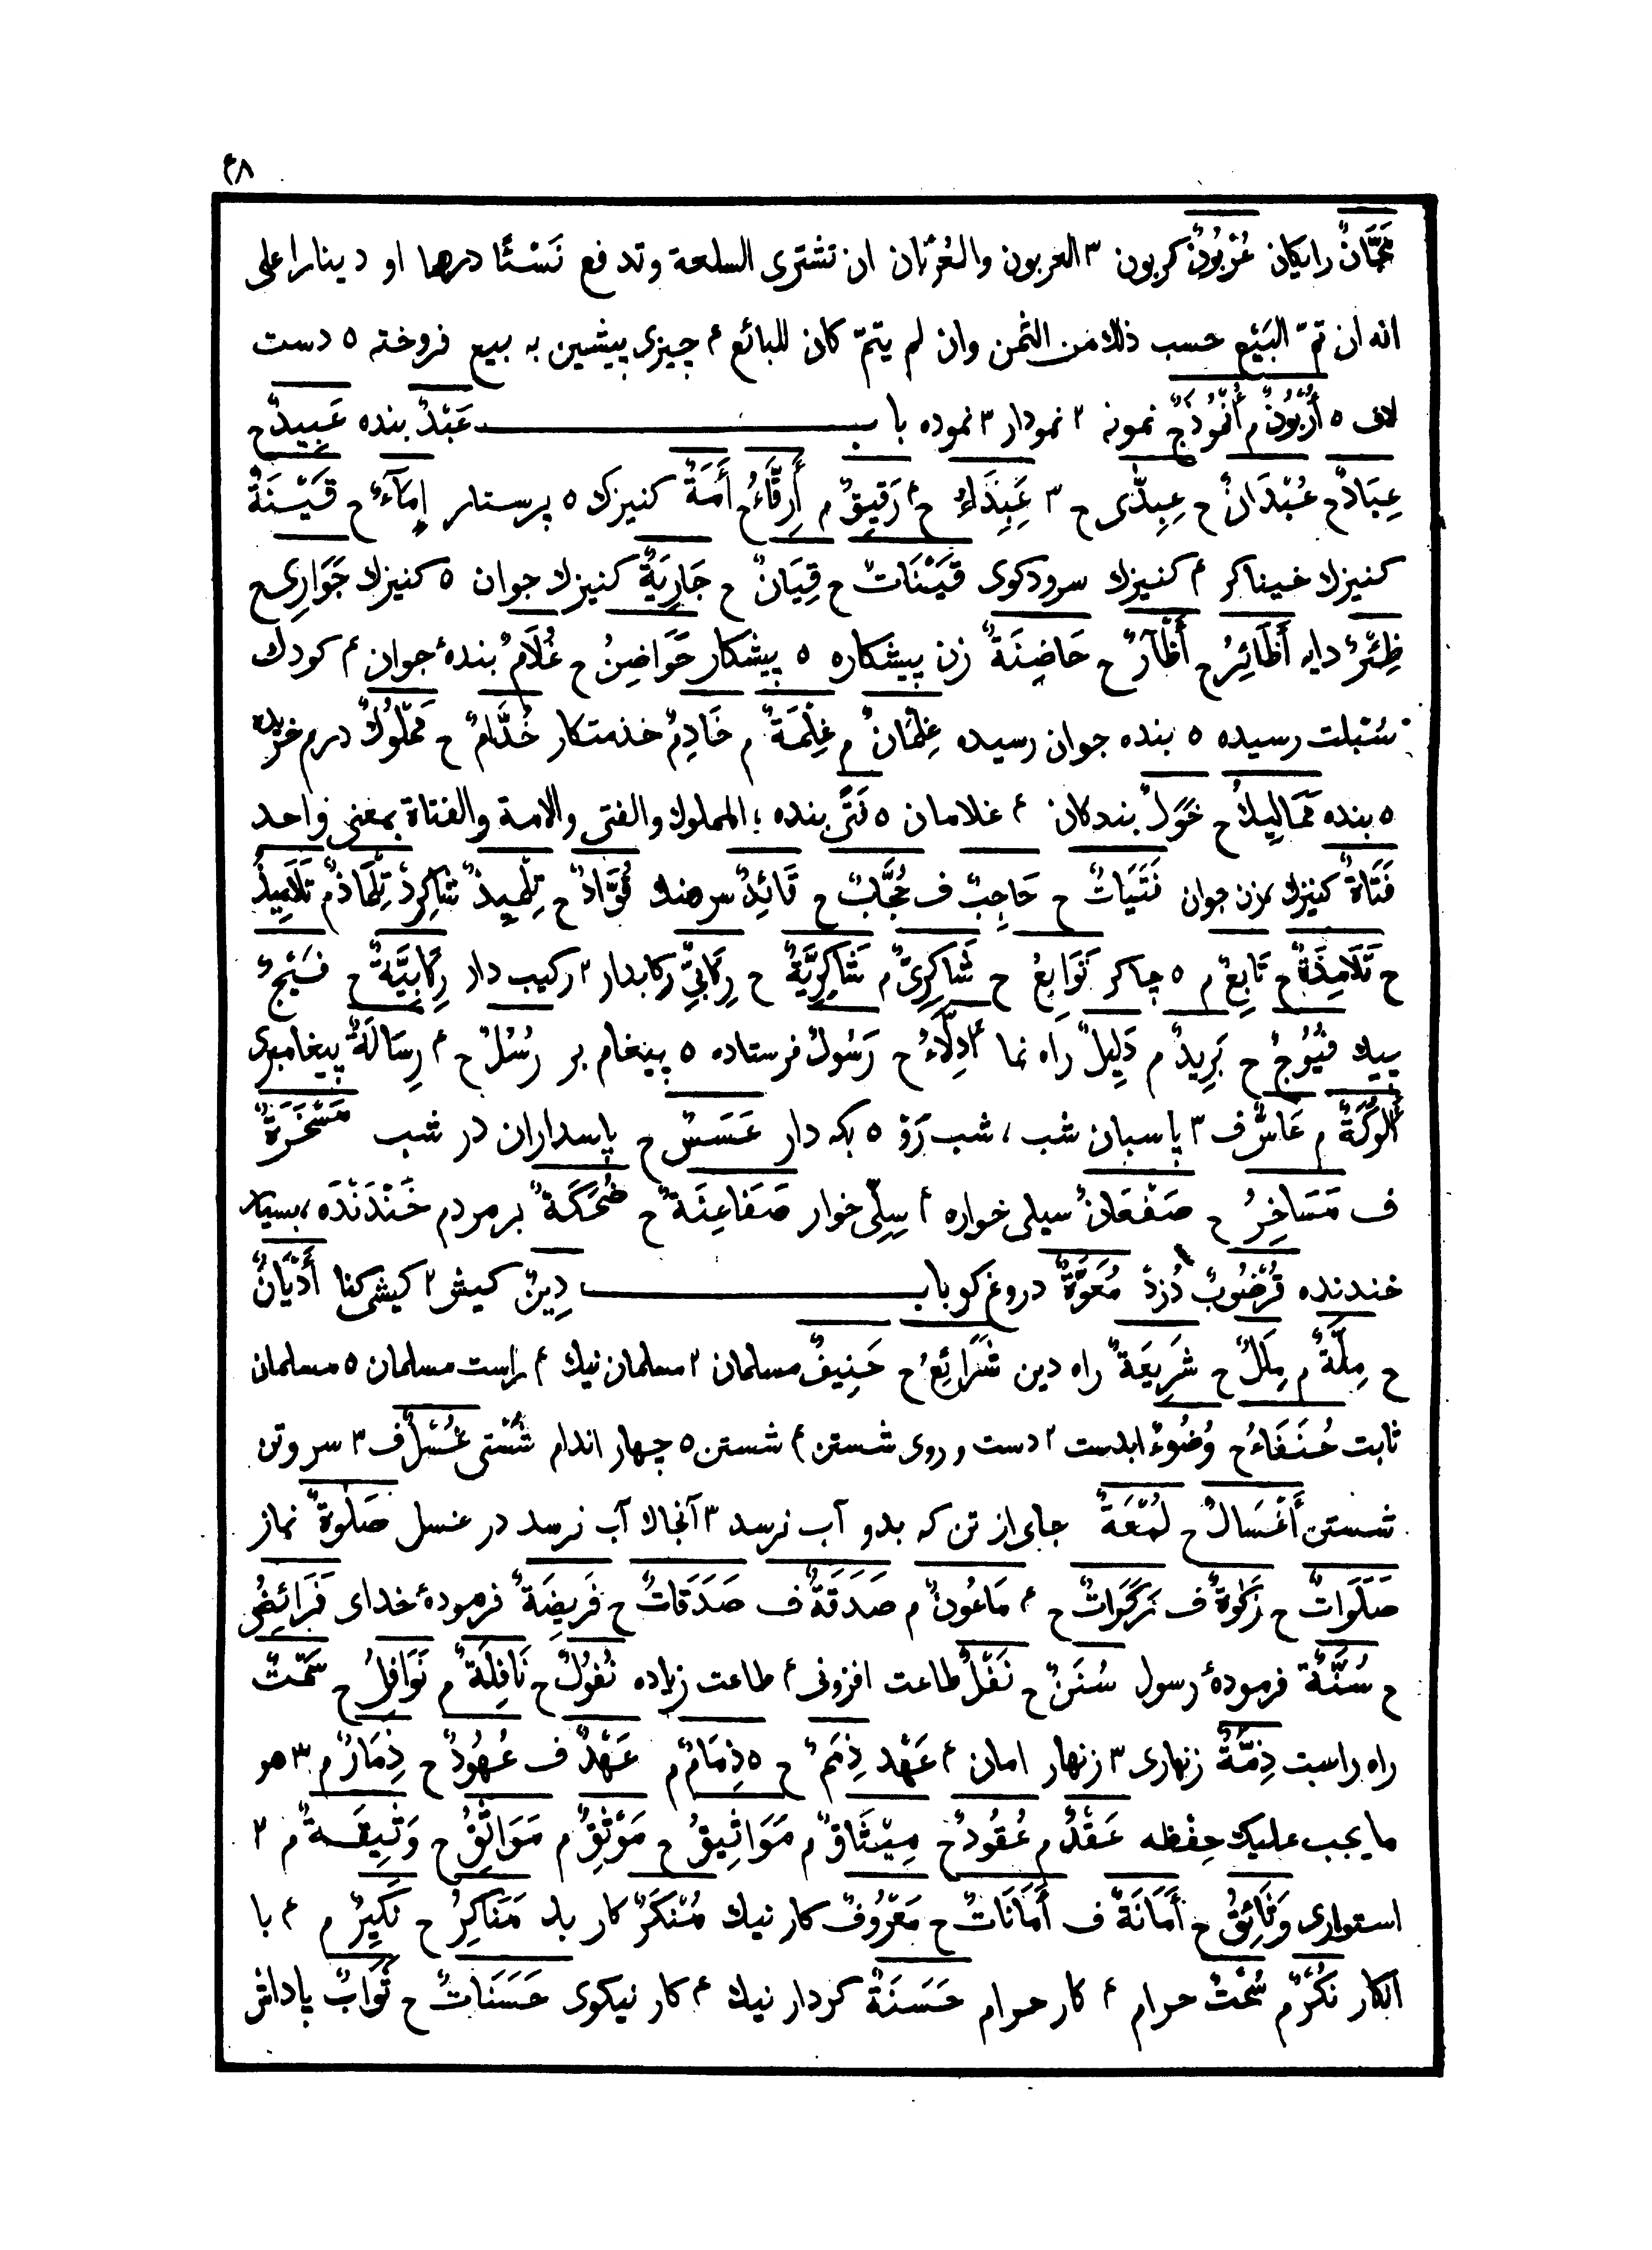 ۴۸
مَجَّانٌ رایکان عُرْبُونٌ کربون ۳ العربون والعُرْبان ان تشتری السلعة وتدفع نَسْئًا درهما او دینارا علی
انه ان تمّ البَیْع حسب ذلك من الثمن وان لم یتمّ کان للبائع ۴ چیزی پیشین به بیع فروخته ۵ دست
لاف ۵ أُرْبُونٌ م أُنْمُوذَجٌ نمونه ۲ نمودار ۳ نموده باب عَبْدٌ بنده عَبِیدٌ ح
عِبَادٌ ح عُبْدَانٌ ح عِبِدّٰی ح ۳ عَبِدَاءُ ح ۴ رَقِیقٌ م أَرِقَّاءُ ح أَمَةٌ کنیزك ۵ پرستار إِمَآءٌ ح قَیْنَةٌ
کنیزك خیناکر ۴ کنیزك سرودکوی قَیْنَاتٌ ح قِیَانٌ ح جَارِیَةٌ کنیزك جوان ۵ کنیزك جَوَارِی ح
ظِئْرٌ دایه أَظَائِرُ ح أَظْآرٌ ح حَاضِنَةٌ زن پیشکاره ۵ پیشکار حَوَاضِنُ ح غُلَامٌ بندهٔ جوان ۴ کودك
سُبْلت رسیده ۵ بنده جوان رسیده غِلْمَانٌ م غِلْمَةٌ م خَادِمٌ خذمتکار خُدَّامٌ ح مَمْلُوكٌ درم خریده
۵ بنده مَمَالِیكُ ح خَوَلٌ بندکان ۴ غلامان ۵ فَتًی بنده ؛ المملوك والفتی والامة والفتاة بمعنی واحد
فَتَاةٌ کنیزك زن جوان فَتَیَاتٌ ح حَاجِبٌ ف حُجَّابٌ ح قَائِدٌ سرهنك قُوَّادٌ ح تِلْمِیذٌ شاکِردْ تِلْمَاذٌ م تَلَامِیذُ
ح تَلَامِذَةٌ ح تَابِعٌ م ۵ چاکر تَوَابِعُ ح شَاکِرِیٌّ م شَاکِرِیَّةٌ ح رِکَابِیٌّ رکابدار ۲ رکیب دار رِکَابِیَّةٌ ح فَیْجٌ
پیك فُیُوجٌ ح بَرِیدٌ م دَلِیلٌ راه نما ۴ أَدِلَّاءُ ح رَسُولٌ فرستاده ۵ پیغام بر رُسُلٌ ح ۴ رِسَالَةٌ پیغامبری
أَلُوکَةٌ م عَاسٌّ ف ۳ پاسبان شب ، شب رَوْ ۵ بکه دار عَسَسٌ ح پاسداران در شب مَسْخَرَةٌ
ف مَسَاخِرُ ح صَفْعَانٌ سیلی خواره ۴ سِیلِی خوار صَفَاعِنَةٌ ح ضُحَکَةٌ برمردم خَنْدَنْدَه ، بسیار
خندنده قُرْضُوبٌ دُزد مُعَوَّةٌ دروغ کو باب دِینٌ کیش ۲ کیشی کنا أَدْیَانٌ
ح مِلَّةٌ م مِلَلٌ ح شَرِیعَةٌ راه دین شَرَائِعُ ح حَنِیفٌ مسلمان ۲ مسلمان نیك ۴ راست مسلمان ۵ مسلمان
ثابت حُنَفَاءُ ح وُضُوءٌ ابدست ۲ دست و روی شستن ۴ شستن ۵ چهار اندام شُسْتی غُسْلٌ ف ۳ سر وتن
شستن أَغْسَالٌ ح لُمْعَةٌ جای از تن که بدو آب نرسد ۳ آنجاك آب نرسد در غسل صَلٰوةٌ نماز
صَلَوَاتٌ ح زَکٰوةٌ ف زَکَوَاتٌ ح ۴ مَاعُونٌ م صَدَقَةٌ ف صَدَقَاتٌ ح فَرِیضَةٌ فرمودهٔ خدای فَرَائِضُ
ح سُنَّةٌ فرمودهٔ رسول سُنَنٌ ح نَفْلٌ طاعت افزونی ۴ طاعت زیاده نُفُولٌ ح نَافِلَةٌ م نَوَافِلُ ح سَمْتٌ
راه راست ذِمَّةٌ زنهاری ۳ زنهار امان ۴ عَهْد ذِمَمٌ ح ۵ ذِمَامٌ م عَهْدٌ ف عُهُودٌ ح ذِمَارٌ م ۳ هو
ما یجب علیك حِفْظه عَقْدٌ م عُقُودٌ ح مِیْثَاقٌ م مَوَاثِیقُ ح مَوْثِقٌ م مَوَاثِقُ ح وَثِیقَةٌ م ۳
استواری وَثَائِقُ ح أَمَانَةٌ ف أَمَانَاتٌ ح مَعْرُوفٌ کار نیك مُنْکَرٌ کار بد مَنَاکِرُ ح نَکِیرٌ م ۴ با
انکار نُکُرٌ م سُحْتٌ حرام ۴ کار حرام حَسَنَةٌ کردار نیك ۴ کار نیکوی حَسَنَاتٌ ح ثَوَابٌ پاداش